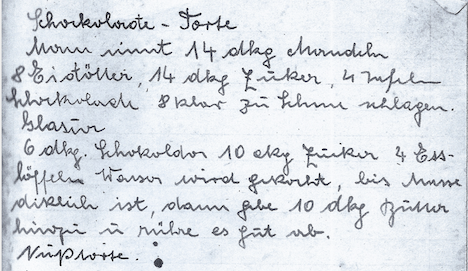 Schockolaote - Torte
Mann nimt 14 dkg Mandeln
8 Eistötter, 14 dkg Zuker, 4 Tafeln
Schockolade 8 klar zu Schne schlagen.
Glasur
6 dkg. Schokoldor 10 dkg Zuiker 4 Ess-
löffeln Wasser wird gekocht, bis Masse
diklich ist, dann gebe 10 dkg Butter
hinzu u rühre es gut ab.
Nußtorte.